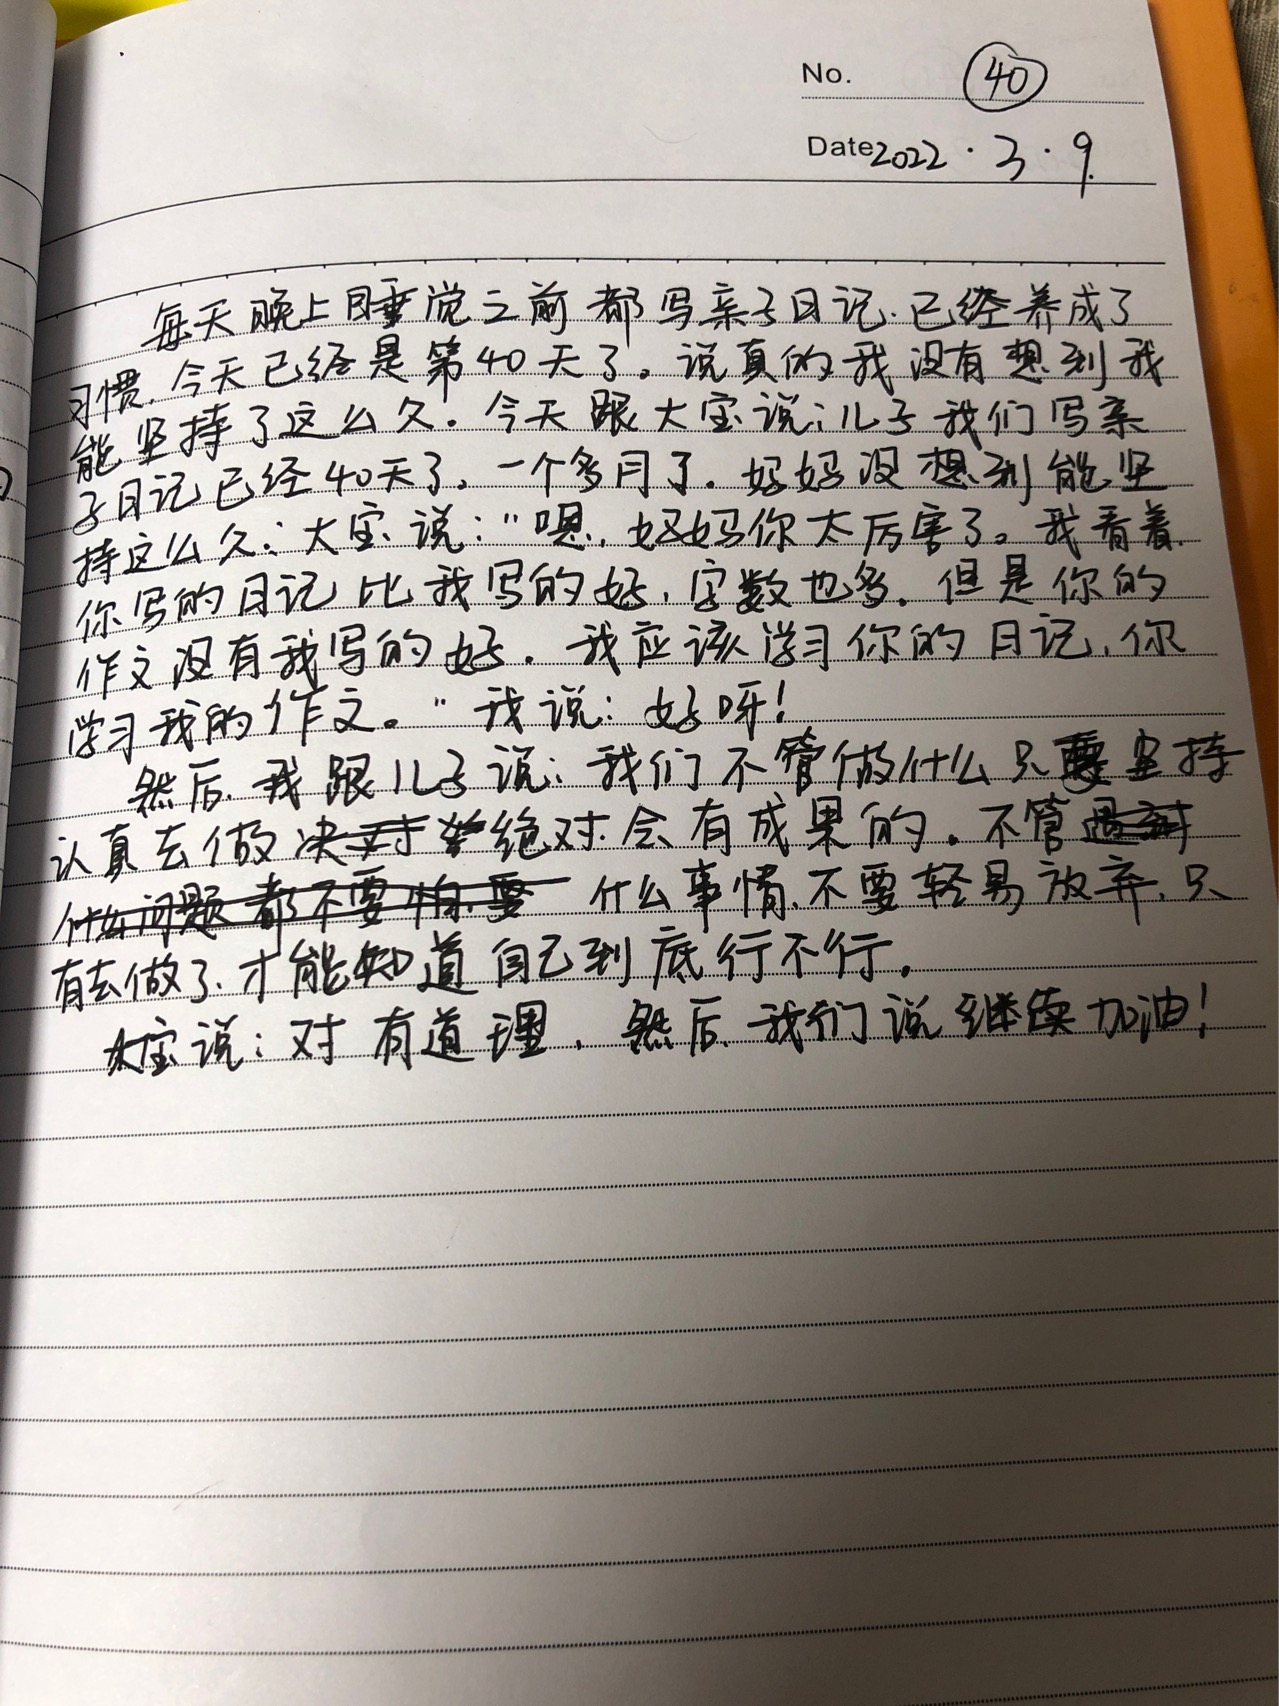 No. 40
Date 2022.3.9.
每天晚上睡觉之前都写亲子日记.已经养成了
习惯.今天已经是第40天了。说真的我没有想到我
能坚持了这么久.今天跟大宝说:儿子我们写亲
子日记已经40天了.一个多月了.妈妈没想到能坚
持这么久:大宝说:"嗯.妈妈你太厉害了。我看着
你写的日记比我写的好.字数也多.但是你的
作文没有我写的好.我应该学习你的日记.你
学习我的作文。"我说:好呀!
然后.我跟儿子说:我们不管做什么只要坚持
认真去做绝对会有成果的.不管
什么事情.不要轻易放弃.只
有去做了.才能知道自己到底行不行.
大宝说:对有道理.然后.我们说继续加油!